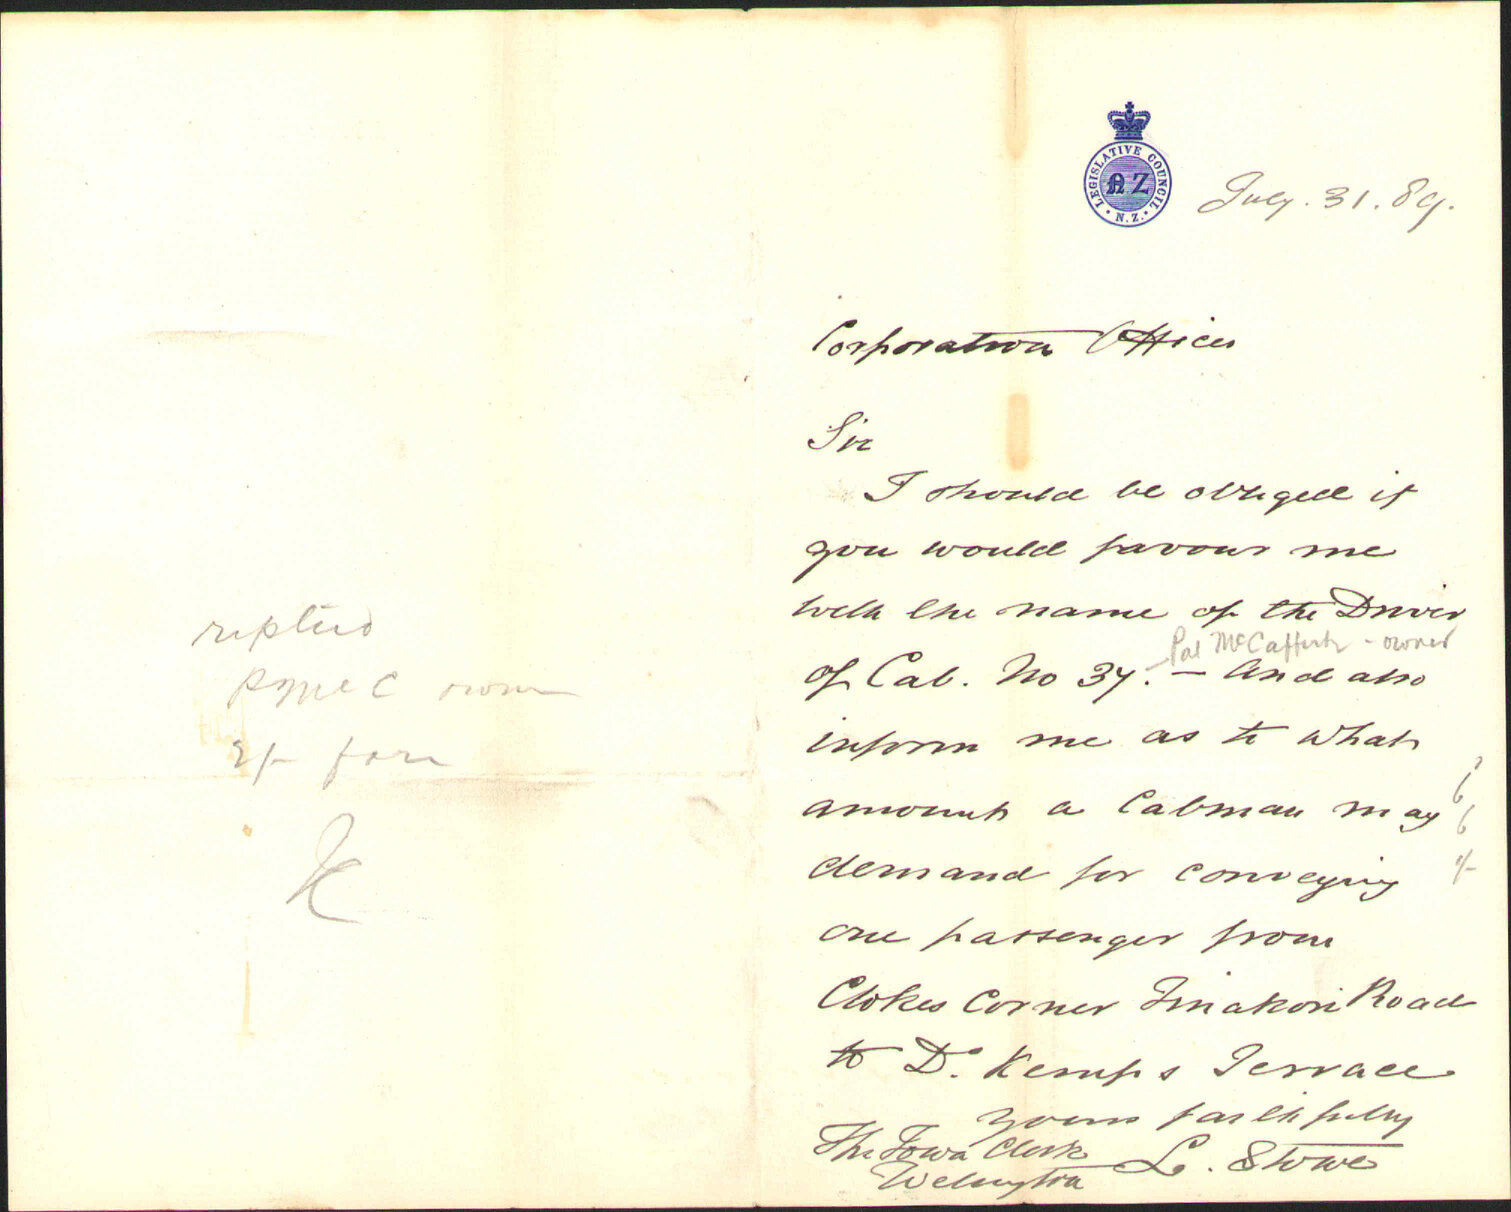 LEGISLATIVE COUNCIL
NZ
N.Z.
July. 31. 89.
Corporation Offices
Sir
I should be obliged if
you would favour me
with the name of the Driver
Pat McCafferty - owner
of Cab. No 37. — And also
inform me as to what
amount a Cabman may
demand for conveying
one passenger from
Clokes Corner Tinakori Road
to Dr. Kemps Terrace
yours faithfully
L. Stowe
The Town Clerk
Wellington
6
6
1/-
replied
P McC owner
2/- fare